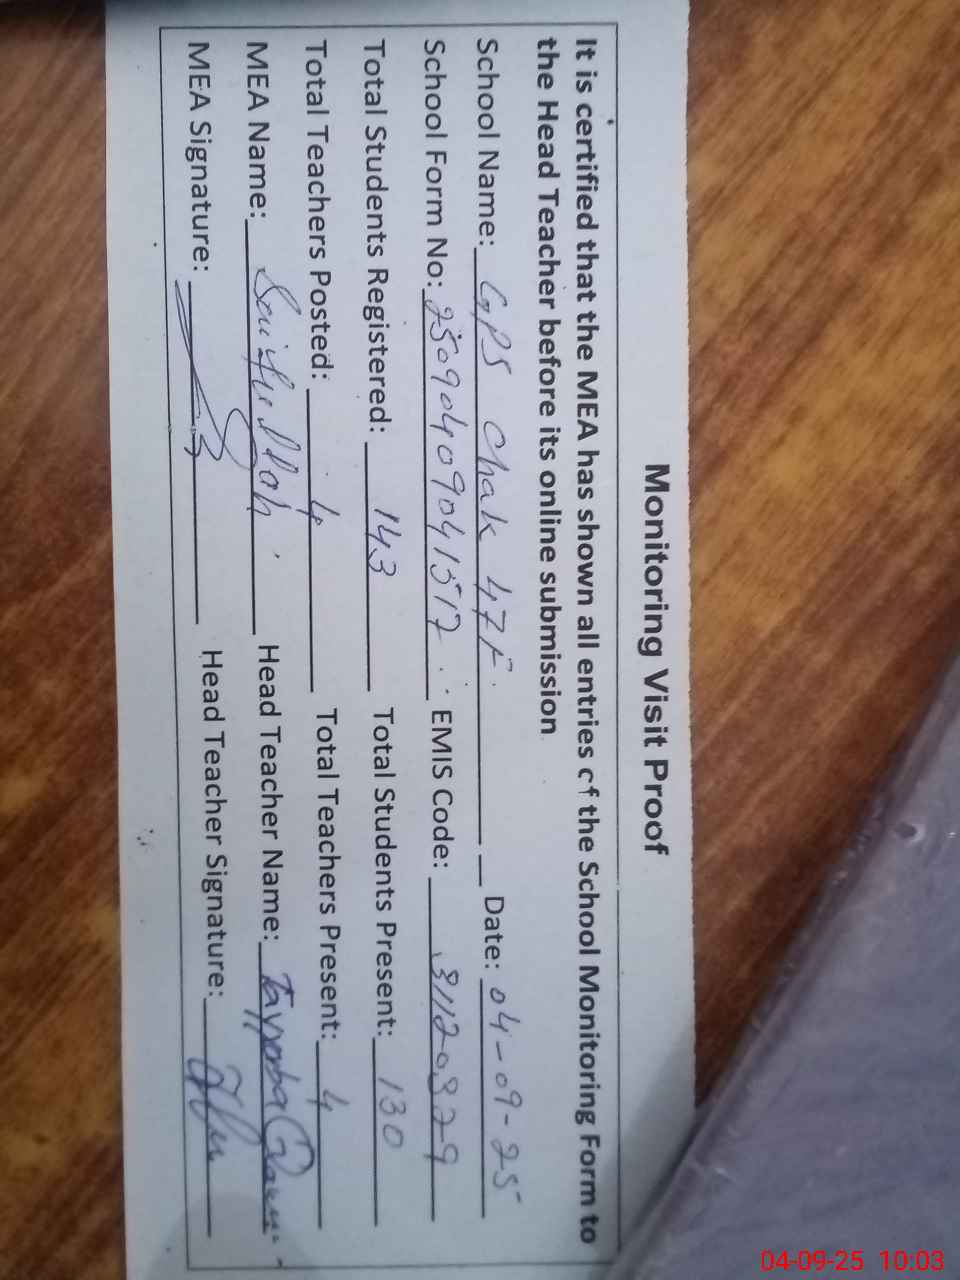 Monitoring Visit Proof
It is certified that the MEA has shown all entries of the School Monitoring Form to
the Head Teacher before its online submission
School Name: GPS Chak 47F Date: 04-09-25
School Form No: 25090409041517 EMIS Code: 31120329
Total Students Registered: 143 Total Students Present: 130
Total Teachers Posted: 4 Total Teachers Present: 4
MEA Name: Saifullah Head Teacher Name: Tayyaba
MEA Signature: Head Teacher Signature:
04-09-25 10:03